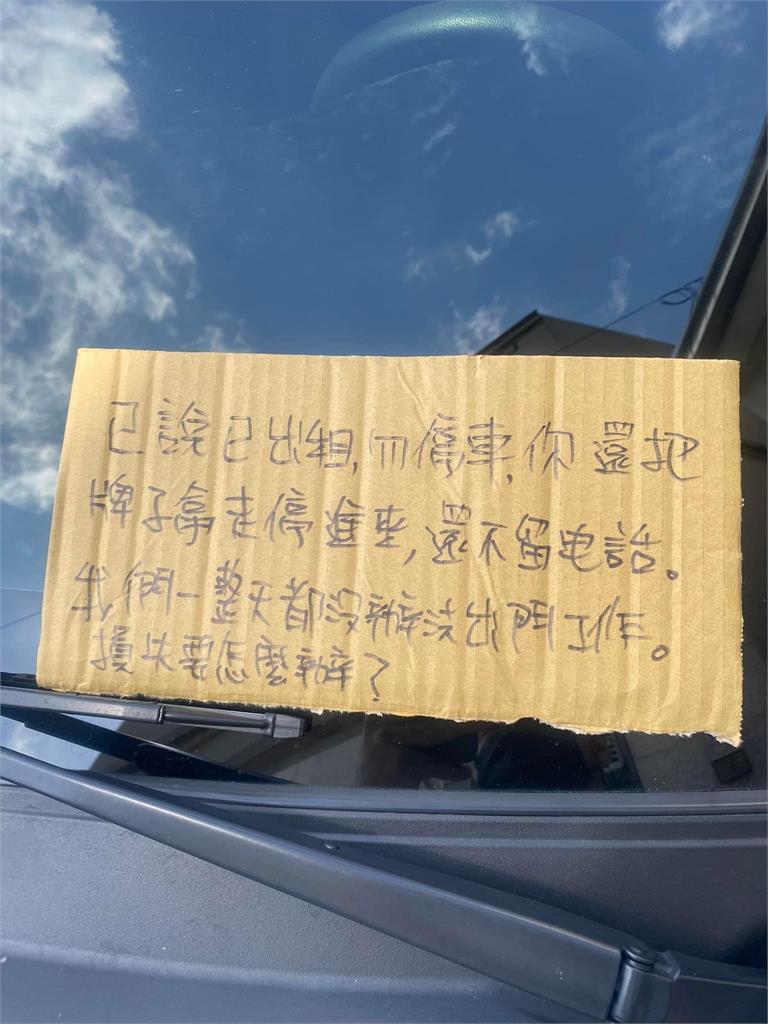 已說已出租,勿停車,你還把
牌子拿走停進來,還不留电話。
我們一整天都沒辦法出門工作。
損失要怎麼辦?